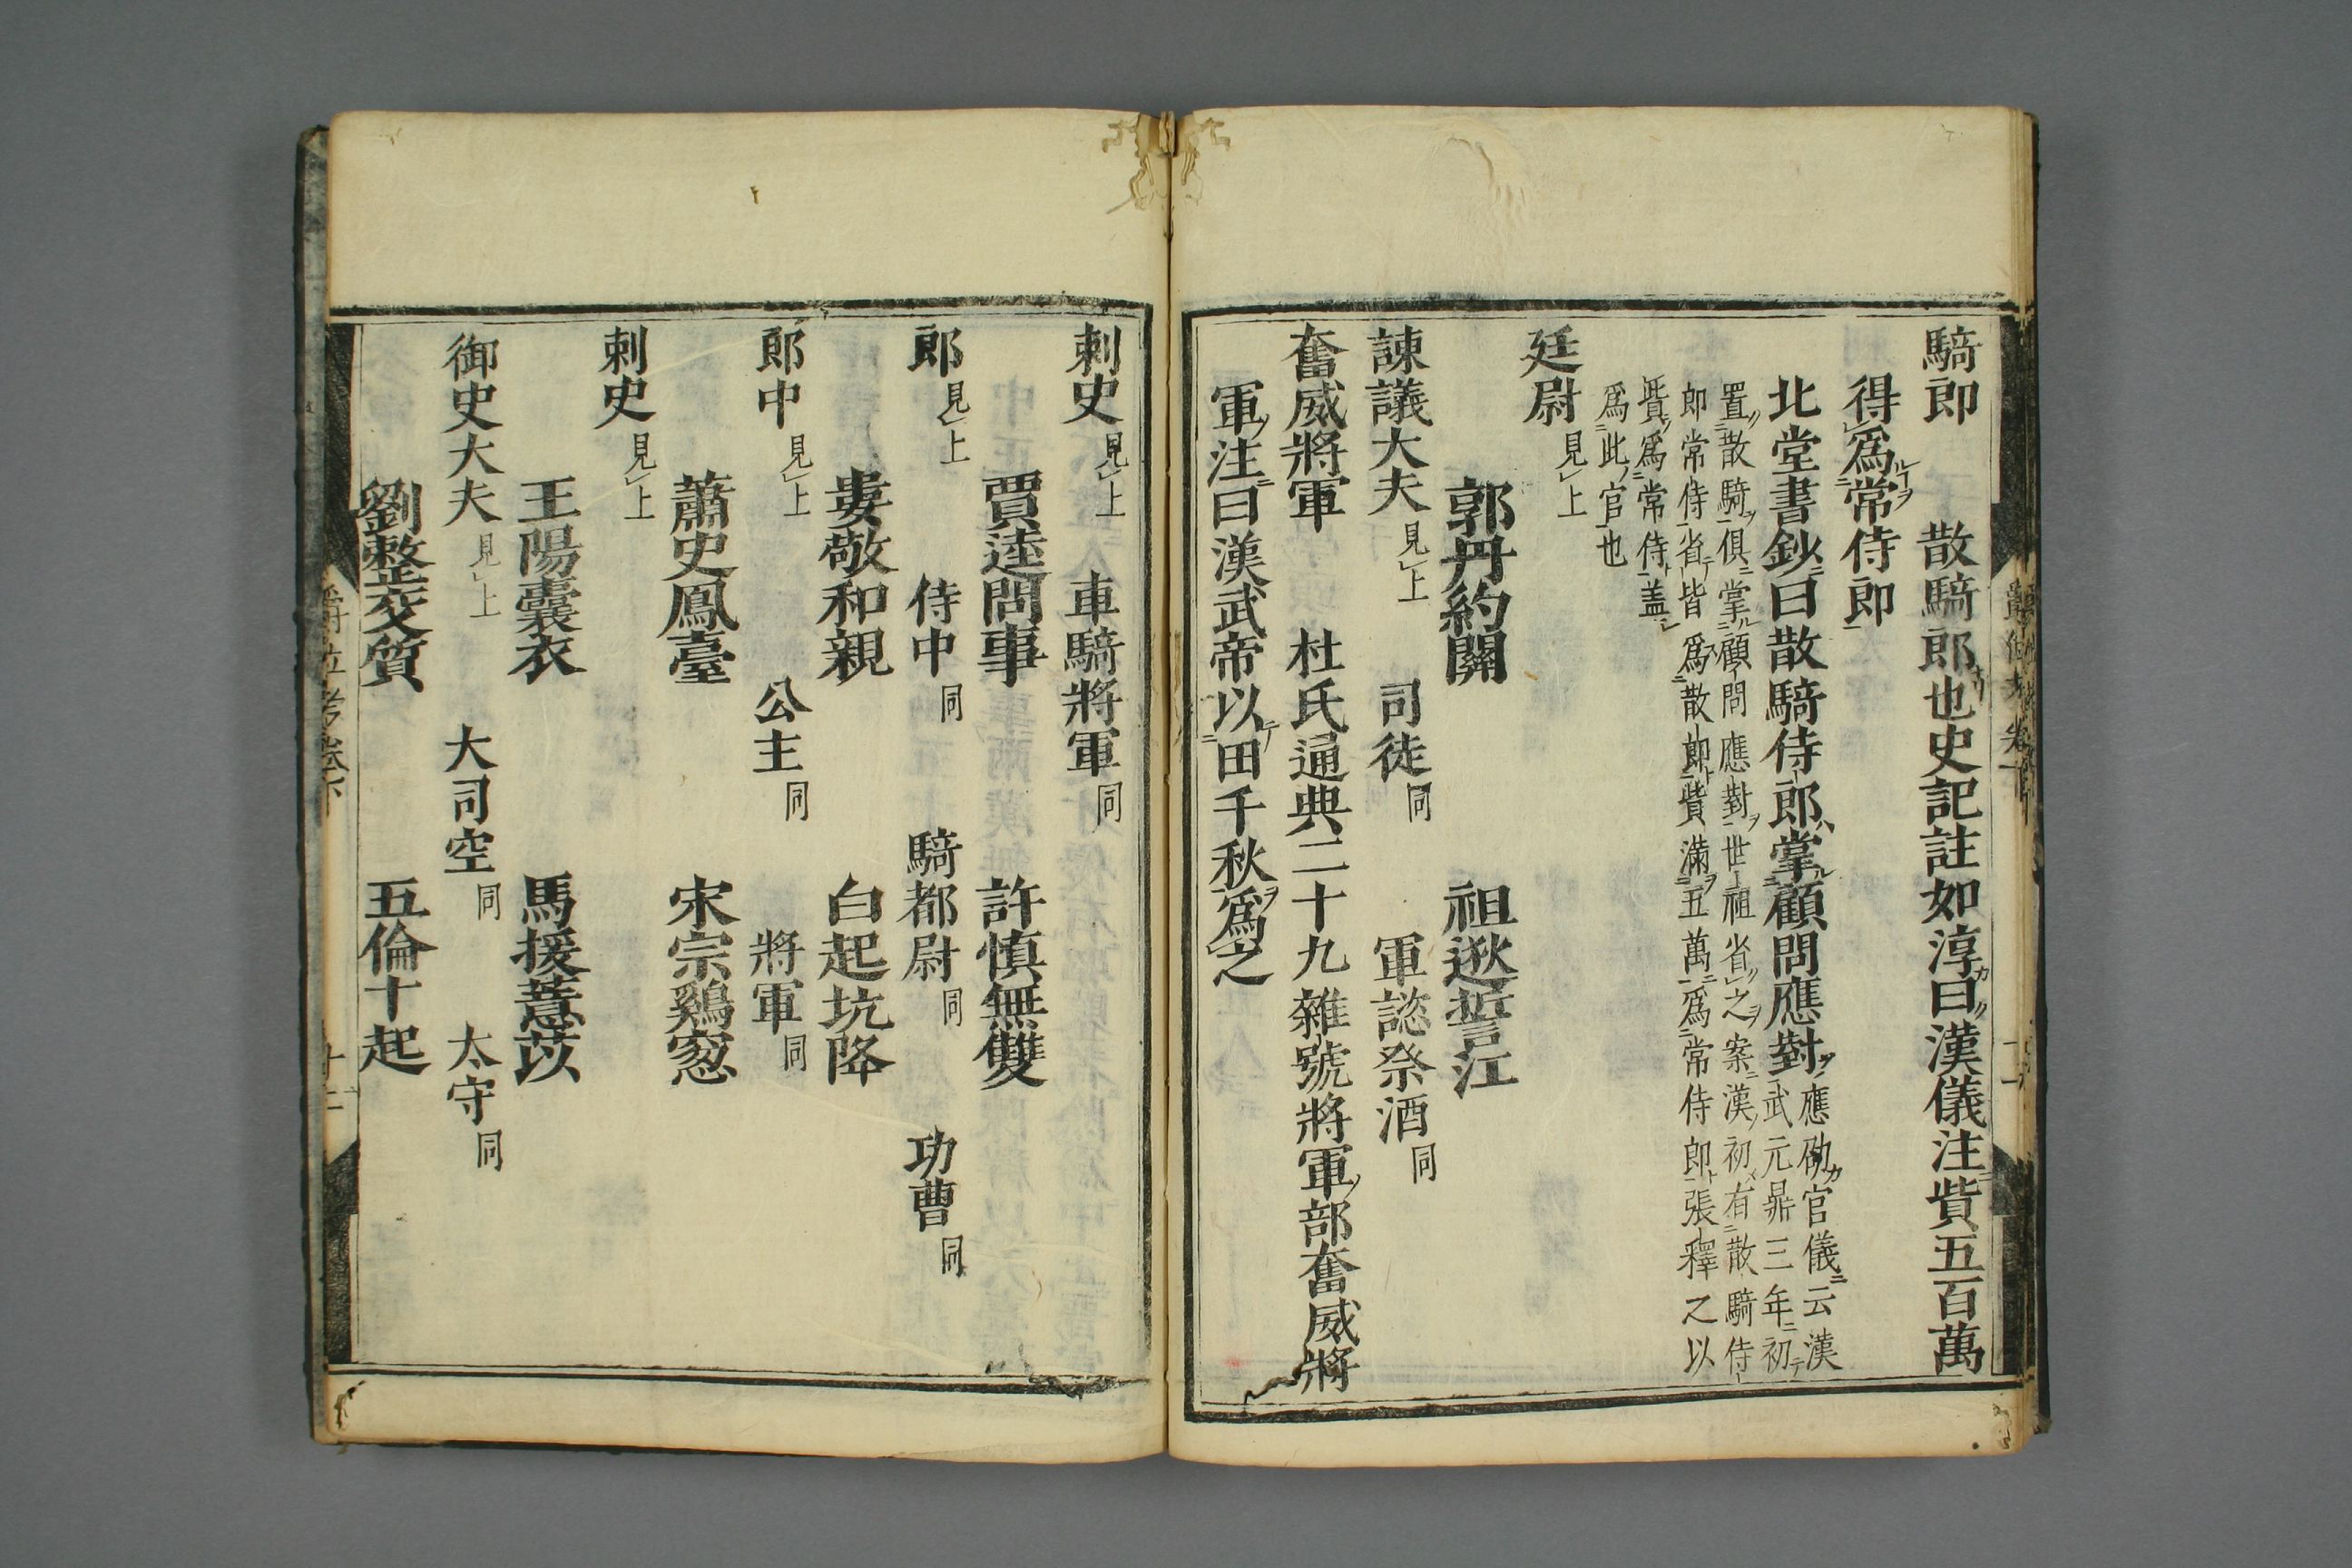 騎郎　散騎郎也史記註如淳曰漢儀注貲五百萬
得爲常侍郎
北堂書鈔曰散騎侍郎掌顧問應對應劭官儀云漢
武元鼎三年初
置散騎俱掌顧問應對世祖省之案漢初有散騎侍
郎常侍省皆爲散郎貲滿五萬爲常侍郎張釋之以
貲爲常侍蓋
爲此官也
廷尉見上
郭丹約關　祖逖誓江
諫議大夫見上　司徒同　軍諮祭酒同
奮威將軍　杜氏通典二十九雜號將軍部奮威將
軍注曰漢武帝以田千秋爲之
刺史見上　車騎將軍同
賈逵問事　許慎無雙
郎見上　侍中同　騎都尉同　功曹同
婁敬和親　白起坑降
郎中見上　公主同　將軍同
蕭史鳳臺　宋宗鷄窓
刺史見上
王陽囊衣　馬援薏苡
御史大夫見上　大司空同　太守同
劉整交質　五倫十起
爵位考卷下
十二